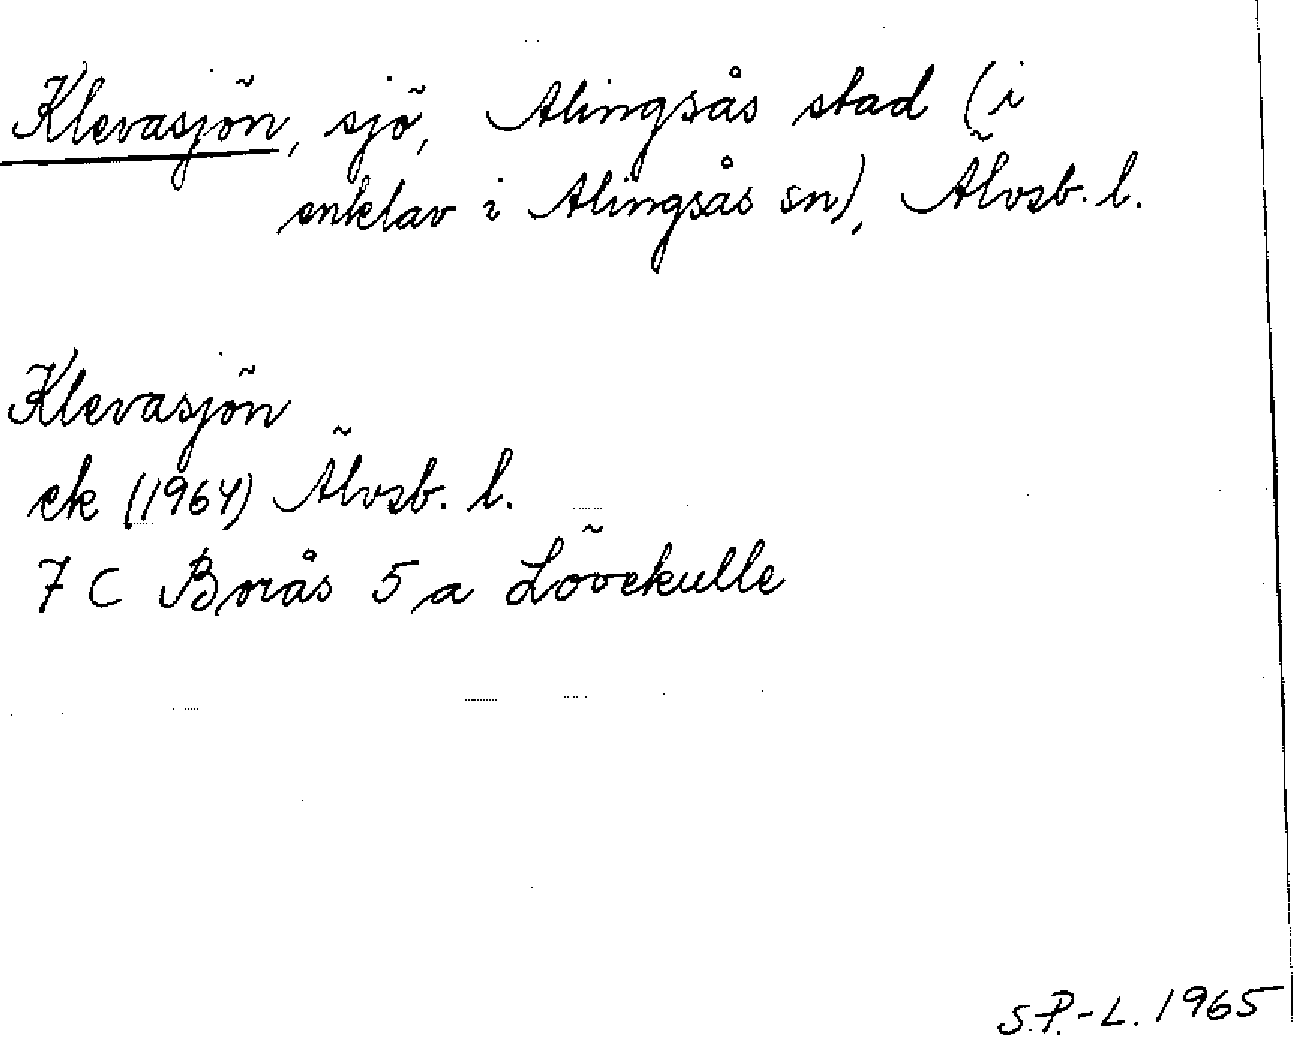 Klevasjön, sjö, Alingsås stad (i
enklav i Alingsås sn), Älvsb. l.
Klevasjön
ek (1964) Älvsb. l.
7 C Borås 5 a Lövekulle
S.P.-L. 1965